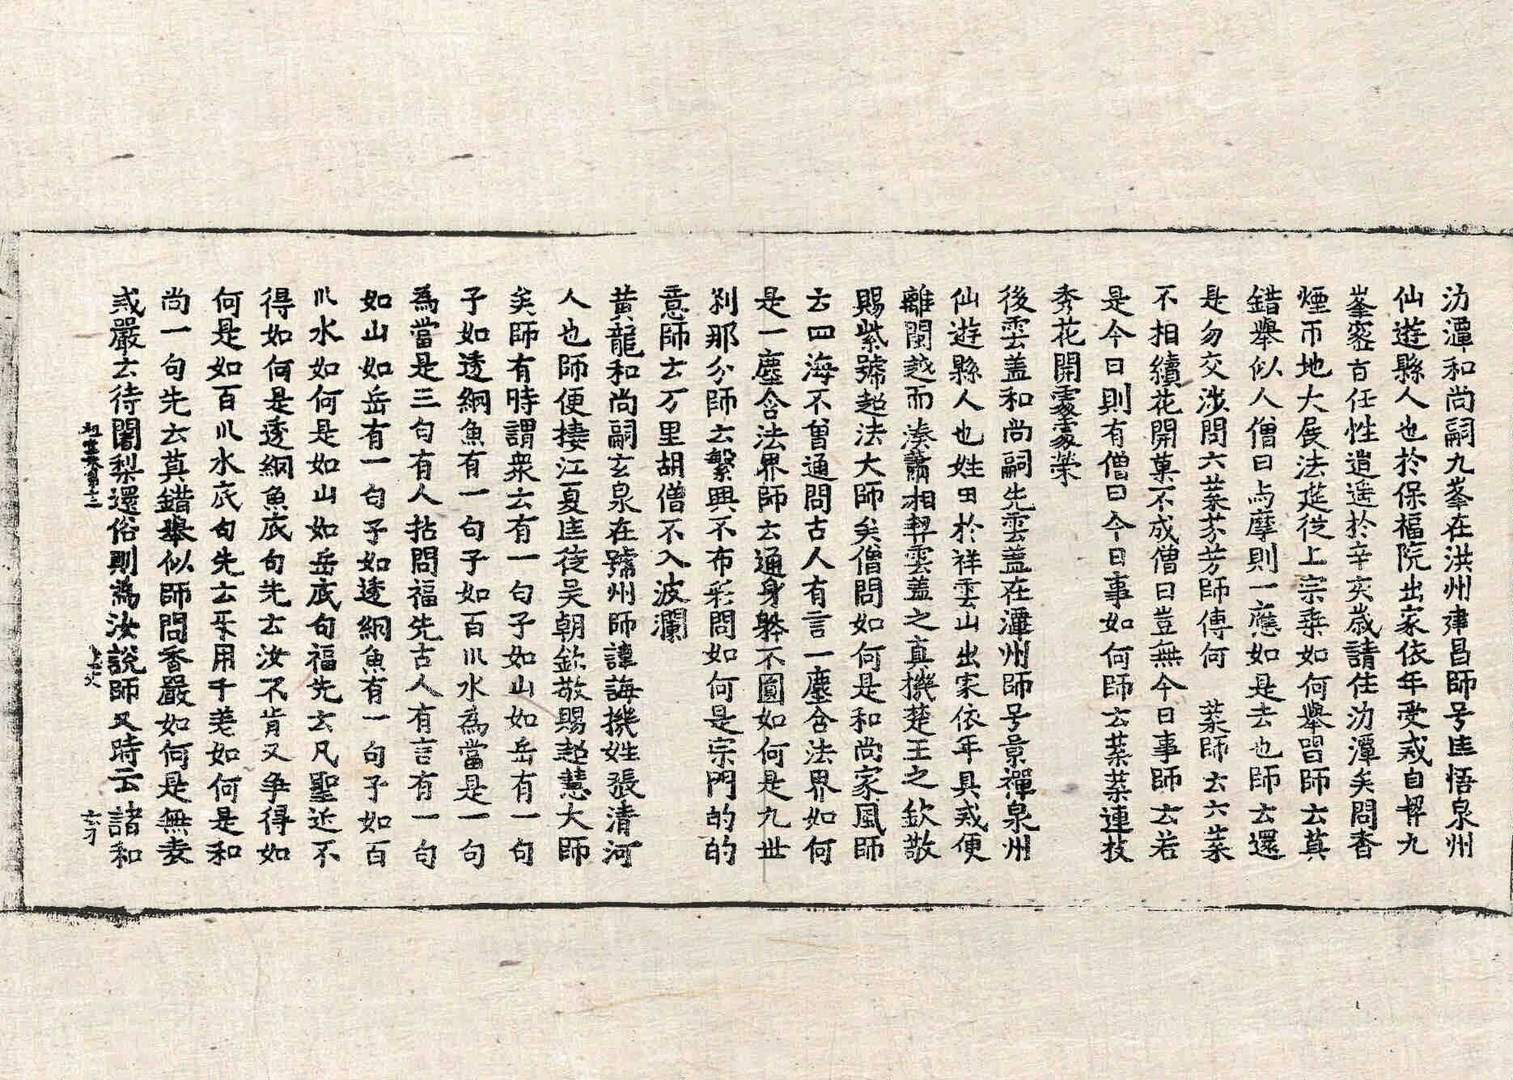 泐潭和尚嗣九峯在洪州建昌師号匡悟泉州
仙遊縣人也於保福院出家依年受戒自契九
峯密旨任性逍遙於辛亥歲請住泐潭矣問香
煙帀地大展法筵從上宗乘如何舉唱師云莫
錯舉似人僧曰与摩則一應如是去也師云還
是勿交涉問六葉芬芳師傳何葉師云六葉
不相續花開菓不成僧曰豈無今日事師云若
是今日則有僧曰今日事如何師云葉葉連枝
秀花開處處榮
後雲盖和尚嗣先雲盖在潭州師号景禪泉州
仙遊縣人也姓田於祥雲山出家依年具戒便
離閩越而湊蕭相契雲盖之真機楚王之欽敬
賜紫號超法大師矣僧問如何是和尚家風師
云四海不曾通問古人有言一塵含法界如何
是一塵含法界師云通身躰不圓如何是九世
刹那分師云繁興不布彩問如何是宗門的的
意師云万里胡僧不入波瀾
黃龍和尚嗣玄泉在號州師諱誨機姓張清河
人也師便棲江夏匡徒吴朝欽敬賜超慧大師
矣師有時謂衆云有一句子如山如岳有一句
子如透網魚有一句子如百川水為當是一句
為當是三句有人拈問福先古人有言有一句
如山如岳有一句子如透網魚有一句子如百
川水如何是如山如岳底句福先云凡聖近不
得如何是透網魚底句先云汝不肯又爭得如
何是如百川水底句先云采用千差如何是和
尚一句先云莫錯舉似師問香嚴如何是無表
戒嚴云待闍梨還俗則為汝說師又時云諸和